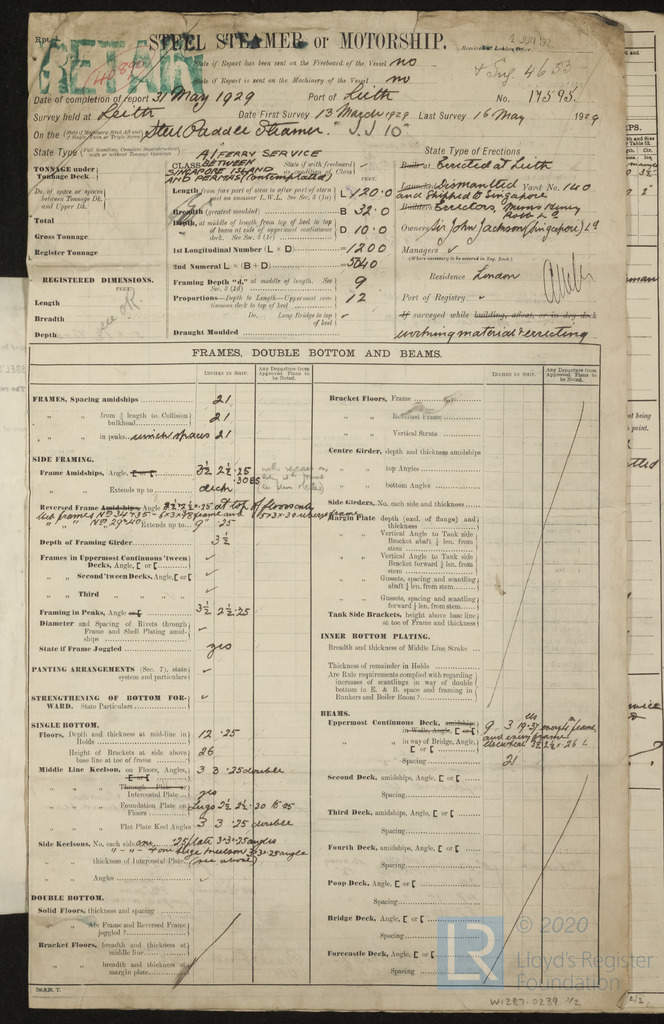 Rpt.
STEEL STEAMER or MOTORSHIP.
RETAIN
State if Report has been sent on the Freeboard of the Vessel no
State if Report is sent on the Machinery of the Vessel no
Date of completion of report 31 May 1929 Port of Leith No. 17595.
Survey held at Leith Date First Survey 13 March 1929 Last Survey 16 May 1929
On the Steel Paddle Steamer "J.J 10"
State Type A/FERRY SERVICE State Type of Erections
TONNAGE under Tonnage Deck
CLASS BETWEEN SINGAPORE ISLAND AND PERMAS (Contemplated)
State if with freeboard as condition of Class
Do. of space or spaces between Tonnage Dk. and Upper Dk.
Total
Gross Tonnage
Register Tonnage
REGISTERED DIMENSIONS.
FEET
Length
Breadth
Depth
see OR
FEET.
Length L 120.0
Breadth (greatest moulded) B 32.0
Depth, at middle of length from top of keel to top of beam at side of uppermost continuous deck. D 10.0
1st Longitudinal Number (L × D) = 1200
2nd Numeral L × (B + D) = 5040
Framing Depth "d," at middle of length. 9
Proportions—Depth to Length—Uppermost continuous deck to top of keel 12
Do. Long Bridge to top of keel
Draught Moulded
Built at Erected at Leith
Launched Dismantled Yard No. 140
and Shipped to Singapore
Builders Erectors, Messrs Henry Robb Ld
Owners Sir John Jackson (Singapore) Ld
Managers
Residence London
Port of Registry
If surveyed while building, afloat, or in dry dock
working material & erecting
FRAMES, DOUBLE BOTTOM AND BEAMS.
INCHES IN SHIP.
Any Departure from Approved Plans to be Noted.
INCHES IN SHIP.
Any Departure from Approved Plans to be Noted.
FRAMES, Spacing amidships 21
" " from 3/5 length to Collision bulkhead 21
" " in peaks 21
SIDE FRAMING.
Frame Amidships, Angle, [ or [ 3½ 2½ .25
" " Extends up to deck
Reversed Frame Amidships, Angle at top of floors only
" " Extends up to 9" .25
Depth of Framing Girder 3½
Frames in Uppermost Continuous 'tween Decks, Angle, [ or [
" " Second 'tween Decks, Angle, [ or [
" " Third " "
Framing in Peaks, Angle or [ 3½ 2½ .25
Diameter and Spacing of Rivets through Frame and Shell Plating amidships
State if Frame Joggled yes
PANTING ARRANGEMENTS (Sec. 7), state system and particulars
STRENGTHENING OF BOTTOM FORWARD. State Particulars
SINGLE BOTTOM.
Floors, Depth and thickness at mid-line in Holds 12 .25
" Height of Brackets at side above base line at toe of frame 26
Middle Line Keelson, on Floors, Angles, [ or [ 3 3 .25 double
" " Through Plate or Intercostal Plate yes
" " Foundation Plate on Floors Lugs 2½ 2½ .30 to .25
" " Flat Plate Keel Angles 3 3 .25 double
Side Keelsons, No. each side one .25 plate 3×3×.25 angles
" " thickness of Intercostal Plate (see above)
" " Angles
DOUBLE BOTTOM.
Solid Floors, thickness and spacing
" " Are Frame and Reversed Frame joggled?
Bracket Floors, breadth and thickness at middle line
" " breadth and thickness at margin plate
Bracket Floors, Frame
" " Reversed Frame
" " Vertical Struts
Centre Girder, depth and thickness amidships
" " top Angles
" " bottom Angles
Side Girders, No. each side and thickness
Margin Plate depth (excl. of flange) and thickness
" " Vertical Angle to Tank side Bracket abaft ¼ len. from stem
" " Vertical Angle to Tank side Bracket forward ¼ len. from stem
" " Gussets, spacing and scantling abaft ¼ len. from stem
" " Gussets, spacing and scantling forward ¼ len. from stem
Tank Side Brackets, height above base line at toe of Frame and thickness
INNER BOTTOM PLATING.
Breadth and thickness of Middle Line Strake
Thickness of remainder in Holds
Are Rule requirements complied with regarding increases of scantlings in way of double bottom in E. & B. space and framing in Bunkers and Boiler Room?
BEAMS.
Uppermost Continuous Deck, amidships 9 3
" " in way of Bridge, Angle, [ or [
Spacing 21
Second Deck, amidships, Angle, [ or [
Spacing
Third Deck, amidships, Angle, [ or [
Spacing
Fourth Deck, amidships, Angle, [ or [
Spacing
Poop Deck, Angle, [ or [
Spacing
Bridge Deck, Angle, [ or [
Spacing
Forecastle Deck, Angle, [ or [
Spacing
© 2020
LR
Lloyd's Register
Foundation
W1287-0239 1/2